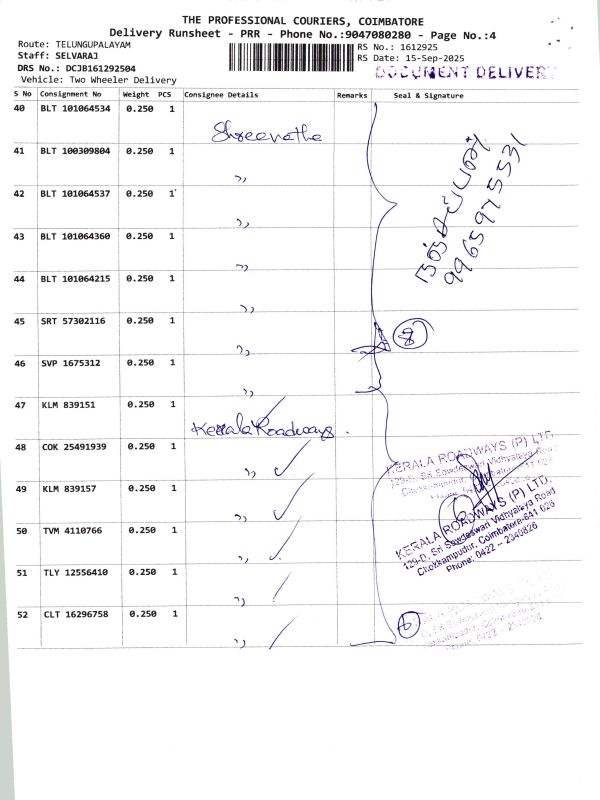 THE PROFESSIONAL COURIERS, COIMBATORE
Delivery Runsheet - PRR - Phone No.:9047080280 - Page No.:4
Route: TELUNGUPALAYAM
Staff: SELVARAJ
DRS No.: DCJB161292504
Vehicle: Two Wheeler Delivery
RS No.: 1612925
RS Date: 15-Sep-2025
DOCUMENT DELIVERY
S No Consignment No Weight PCS Consignee Details Remarks Seal & Signature
40 BLT 101064534 0.250 1
Shreenatha
41 BLT 100309804 0.250 1
,,
42 BLT 101064537 0.250 1
,,
43 BLT 101064360 0.250 1
,,
44 BLT 101064215 0.250 1
,,
9965975531
45 SRT 57302116 0.250 1
,,
8
46 SVP 1675312 0.250 1
,,
47 KLM 839151 0.250 1
Kerala Roadways.
48 COK 25491939 0.250 1
,,
49 KLM 839157 0.250 1
,,
50 TVM 4110766 0.250 1
,,
51 TLY 12556410 0.250 1
,,
52 CLT 16296758 0.250 1
,,
6
KERALA ROADWAYS (P) LTD.
129-D, Sri Sowdeswari Vidhyalaya Road
KERALA ROADWAYS (P) LTD.
129-D, Sri Sowdeswari Vidhyalaya Road
Chokkampudur, Coimbatore-641 026
Phone: 0422 - 2346826